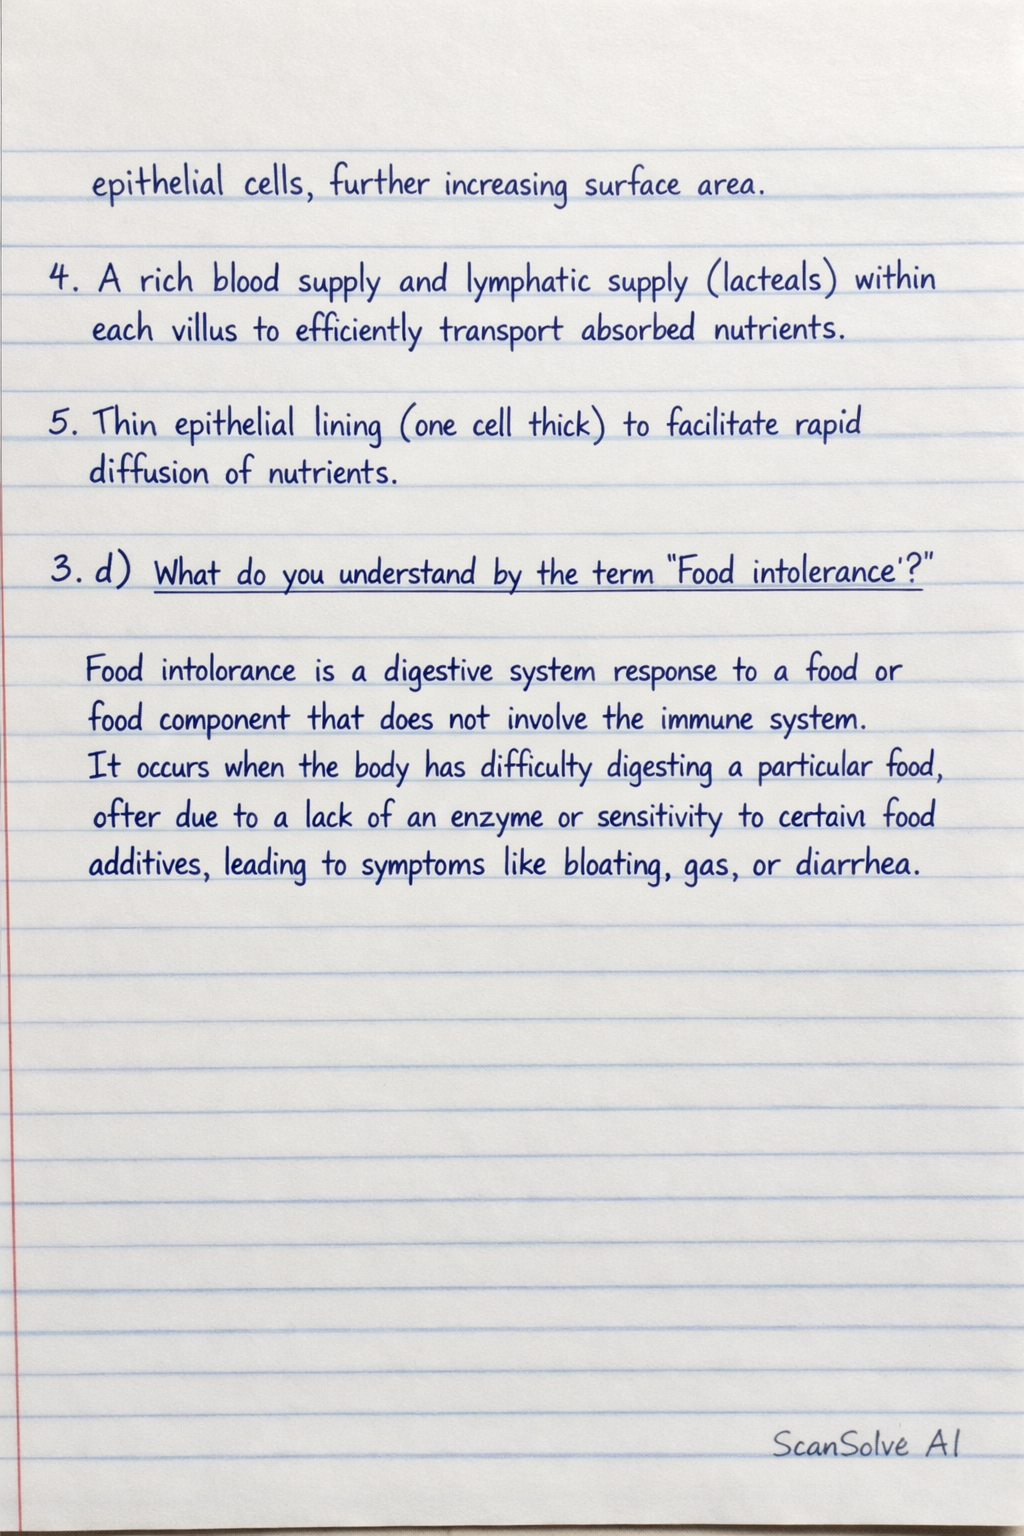 epithelial cells, further increasing surface area.
4. A rich blood supply and lymphatic supply (lacteals) within
each villus to efficiently transport absorbed nutrients.
5. Thin epithelial lining (one cell thick) to facilitate rapid
diffusion of nutrients.
3. d) What do you understand by the term "Food intolerance'?"
Food intolorance is a digestive system response to a food or
food component that does not involve the immune system.
It occurs when the body has difficulty digesting a particular food,
ofter due to a lack of an enzyme or sensitivity to certain food
additives, leading to symptoms like bloating, gas, or diarrhea.
ScanSolve AI